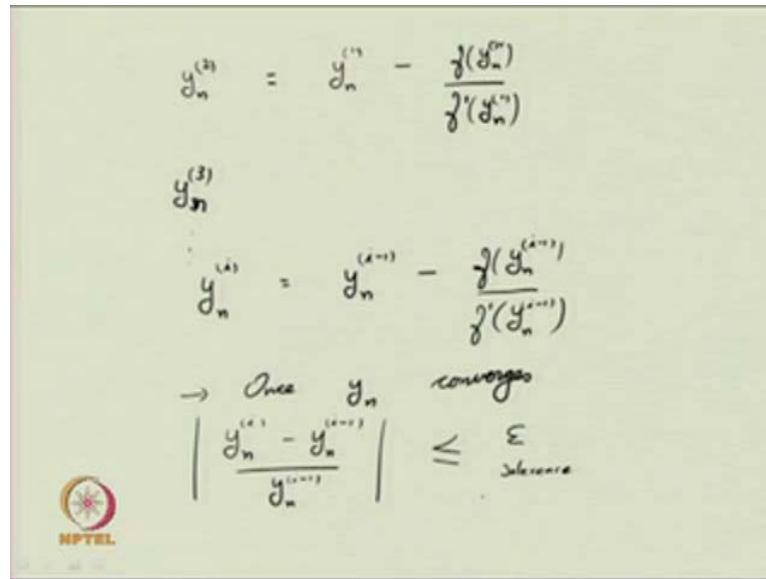 y_n^{(2)} = y_n^{(1)} - \frac{f(y_n^{(1)})}{f'(y_n^{(1)})}
y_n^{(3)}
y_n^{(i)} = y_n^{(i-1)} - \frac{f(y_n^{(i-1)})}{f'(y_n^{(i-1)})}
→ Once y_n converges
\left| \frac{y_n^{(i)} - y_n^{(i-1)}}{y_n^{(i-1)}} \right| ≤ ε
tolerance
NPTEL